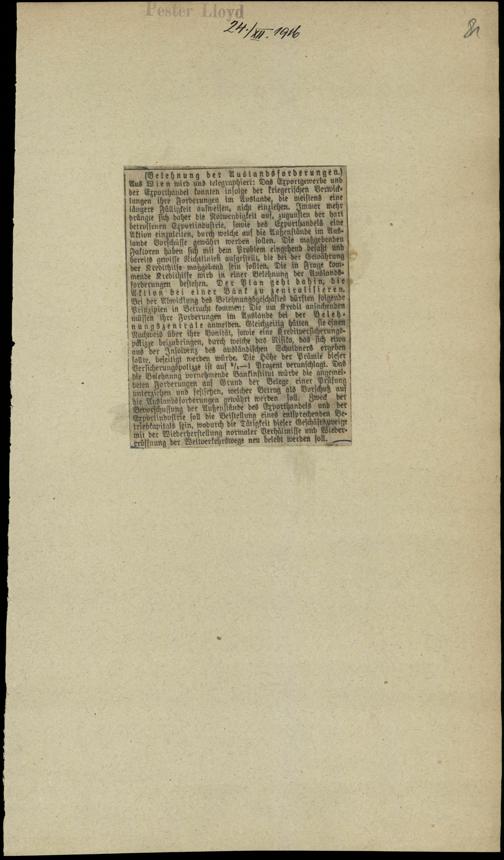 Pester Lloyd
24./XII. 1916
(Belehnung der Auslandsforderungen.)
Aus Wien wird uns telegraphiert: Das Exportgewerbe und
der Exporthandel konnten infolge der kriegerischen Verwick-
lungen ihre Forderungen im Auslande, die meistens eine
längere Fälligkeit aufweisen, nicht einziehen. Immer mehr
drängte sich daher die Notwendigkeit auf, zugunsten der hart
betroffenen Exportindustrie, sowie des Exporthandels eine
Aktion einzuleiten, durch welche auf die Außenstände im Aus-
lande Vorschüsse gewährt werden sollen. Die maßgebenden
Faktoren haben sich mit dem Problem eingehend befaßt und
bereits gewisse Richtlinien aufgestellt, die bei der Gewährung
der Kredithilfe maßgebend sein sollen. Die in Frage kom-
mende Kredithilfe wird in einer Belehnung der Auslands-
forderungen bestehen. Der Plan geht dahin, die
Aktion bei einer Bank zu zentralisieren.
Bei der Abwicklung des Belehnungsgeschäftes dürften folgende
Prinzipien in Betracht kommen: Die um Kredit ansuchenden
müssen ihre Forderungen im Auslande bei der Beleh-
nungszentrale anmelden. Gleichzeitig hätten sie einen
Nachweis über ihre Bonität, sowie eine Kreditversicherungs-
polizze beizubringen, durch welche das Risiko, das sich etwa
aus der Insolvenz des ausländischen Schuldners ergeben
sollte, beseitigt werden würde. Die Höhe der Prämie dieser
Versicherungspolizze ist auf —1 Prozent veranschlagt. Das
die Belehnung vornehmende Bankinstitut würde die angemel-
deten Forderungen auf Grund der Belege einer Prüfung
unterziehen und festsetzen, welcher Betrag als Vorschuß auf
die Auslandsforderungen gewährt werden soll. Zweck der
Bevorschussung der Außenstände des Exporthandels und der
Exportindustrie soll die Beistellung eines entsprechenden Be-
triebskapitals sein, wodurch die Tätigkeit dieser Geschäftszweige
mit der Wiederherstellung normaler Verhältnisse und Wieder-
eröffnung der Weltverkehrswege neu belebt werden soll.